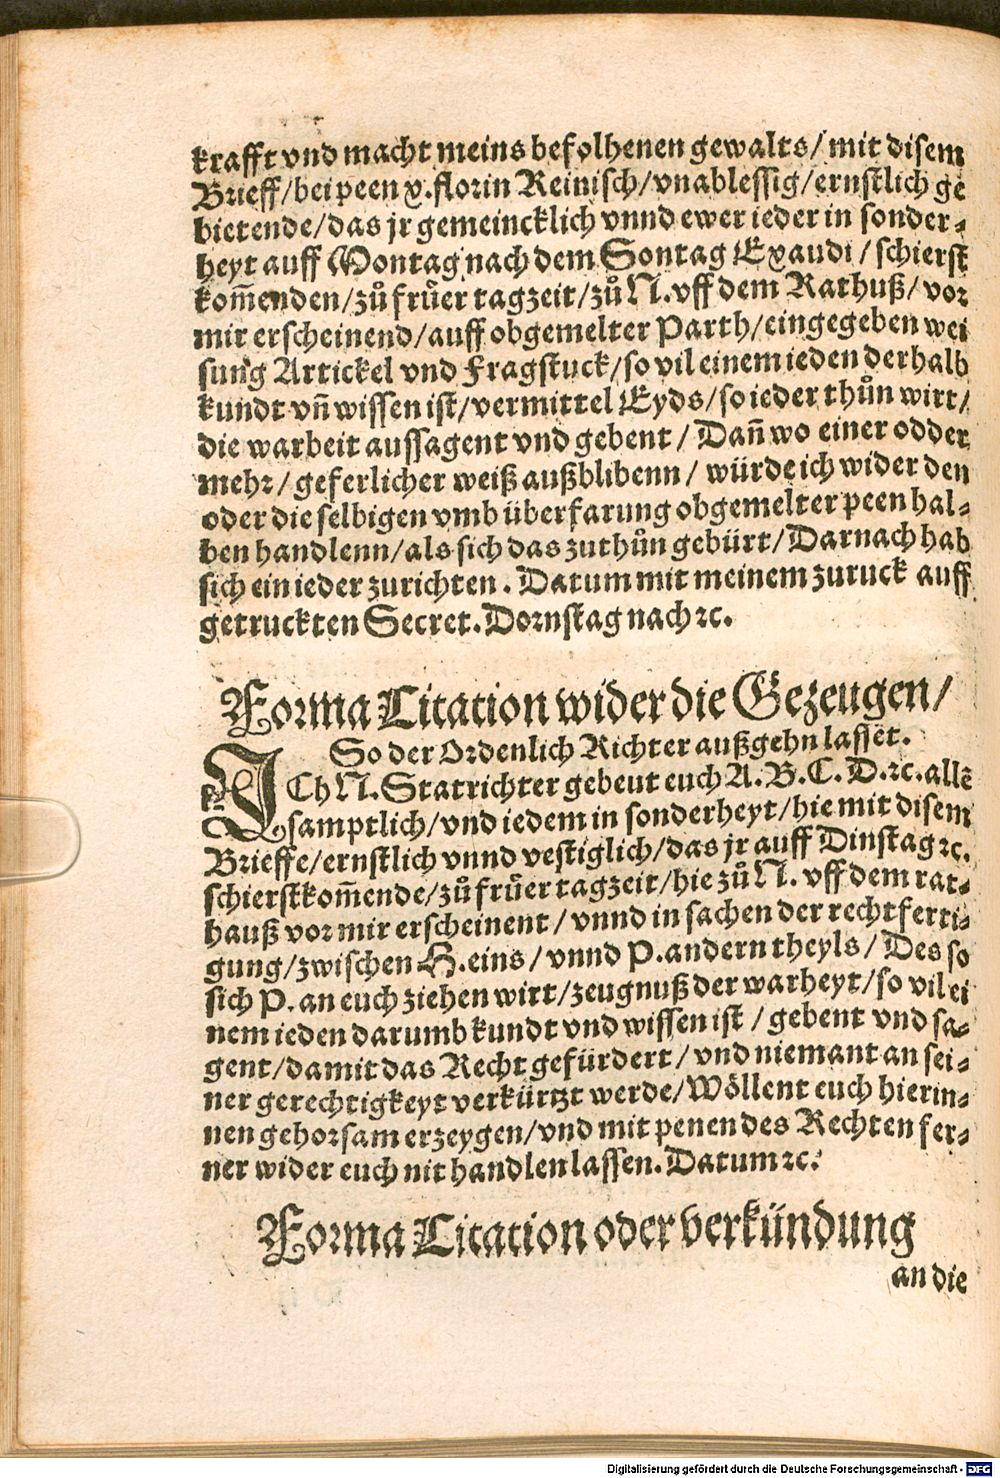 krafft vnd macht meins befolhenen gewalts/ mit disem
Brieff/bei peen x. florin Reinisch/vnablessig/ernstlich ge
bietende/das jr gemeincklich vnnd ewer ieder in sonder⸗
heyt auff Montag nach dem Sontag Exaudi / schierst
kom̃enden/zů frůer tagzeit/zů N. vff dem Rathuß/ vor
mir erscheinend/auff obgemelter Parth/eingegeben wei
sung Artickel vnd Fragstuck/so vil einem ieden derhalb
kundt vñ wissen ist/vermittel Eyds/so ieder thůn wirt/
die warheit aussagent vnd gebent / Dañ wo einer odder
mehr/ geferlicher weiß außblibenn/ würde ich wider den
oder die selbigen vmb überfarung obgemelter peen hal⸗
ben handlenn/als sich das zuthůn gebürt/Darnach hab
sich ein ieder zurichten. Datum mit meinem zuruck auff
getruckten Secret. Dornstag nach ꝛc.
Forma Citation wider die Gezeugen/
So der Ordenlich Richter außgehn lasset.
ICh N. Statrichter gebeut euch A. B. C. D. ꝛc. allẽ
samptlich/vnd iedem in sonderheyt/hie mit disem
Brieffe/ernstlich vnnd vestiglich/das jr auff Dinstag ꝛc.
schierstkom̃ende/zů frůer tagzeit/hie zů N. vff dem rat⸗
hauß vor mir erscheinent/ vnnd in sachen der rechtferti⸗
gung/zwischen H. eins/ vnnd P. andern theyls/ Des so
sich P. an euch ziehen wirt/zeugnuß der warheyt/so vil ei
nem ieden darumb kundt vnd wissen ist / gebent vnd sa⸗
gent/damit das Recht gefürdert/ vnd niemant an sei⸗
ner gerechtigkeyt verkürtzt werde/Wöllent euch hierin⸗
nen gehorsam erzeygen/vnd mit penen des Rechten fer⸗
ner wider euch nit handlen lassen. Datum ꝛc.
Forma Citation oder verkündung
an die
Digitalisierung gefördert durch die Deutsche Forschungsgemeinschaft - DFG